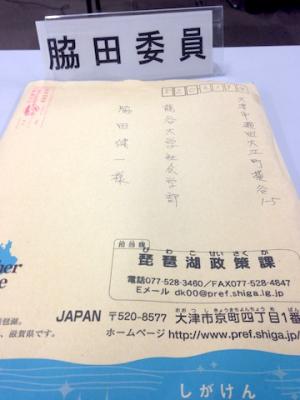 脇田委員
大津市瀬田大江町横谷
1-5
龍谷大学社会学部
脇田健一様
担当課
びわこせいさくか
琵琶湖政策課
電話077-528-3460 / FAX077-528-4847
Eメール dk00@pref.shiga.lg.jp
JAPAN 〒520-8577 大津市京町四丁目1番
ホームページ http://www.pref.shiga.jp/
滋賀県です。
しがけん